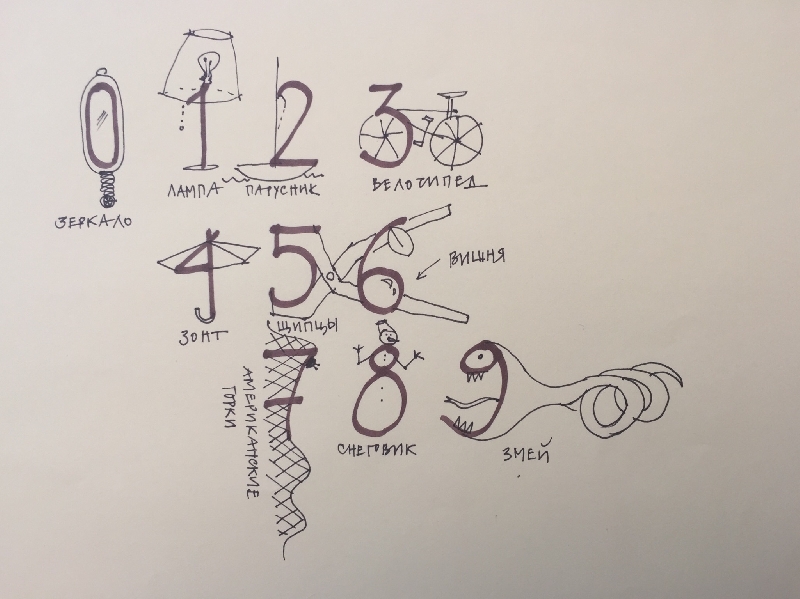 0 1 2 3
ЗЕРКАЛО
ЛАМПА
ПАРУСНИК
ВЕЛОСИПЕД
4 5 6
ЗОНТ
ЩИПЦЫ
ВИШНЯ
7 8 9
АМЕРИКАНСКИЕ
ГОРКИ
СНЕГОВИК
ЗМЕЙ